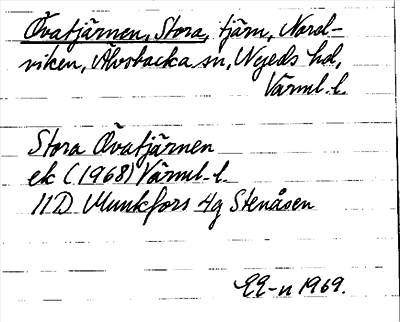 Övatjärnen, Stora, tjärn, Nord-
viken, Älvsbacka sn, Nyeds hd,
Värml. l.
Stora Övatjärnen
ek (1968) Värml. l.
11D Munkfors 4g Stenåsen
EE-n 1969.